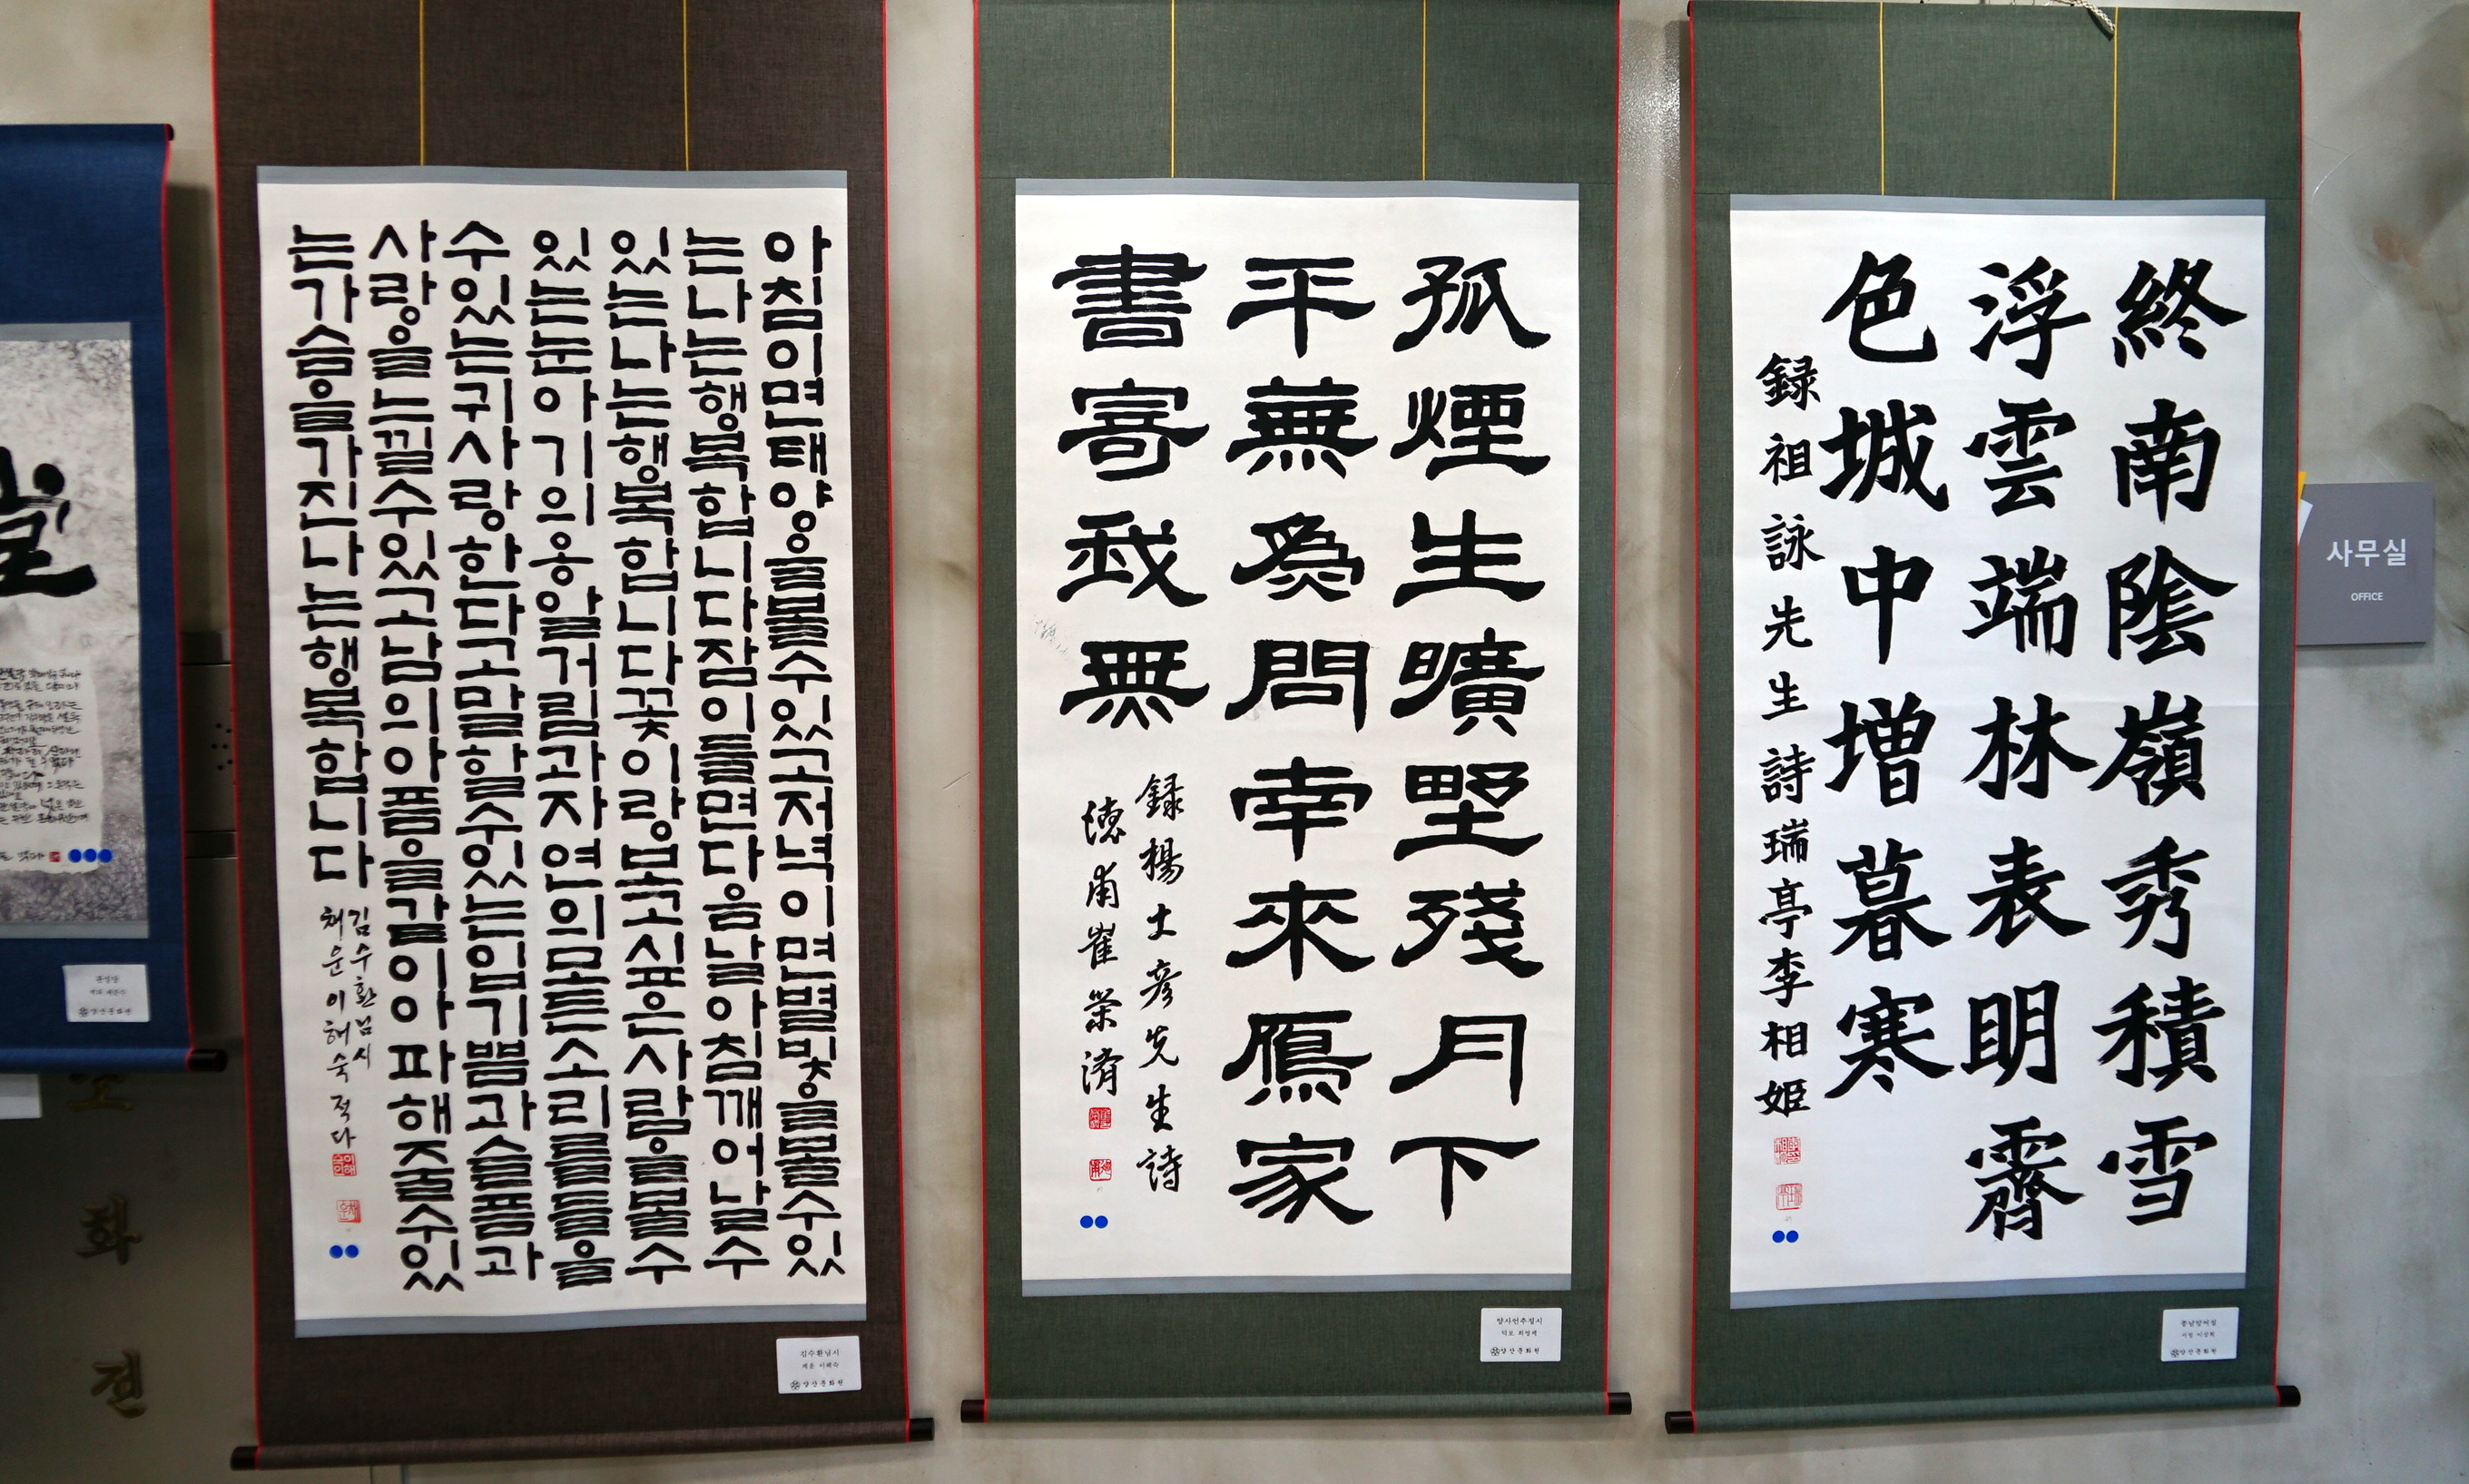 아침이면태양을볼수있고저녁이면별빛을볼수있
는나는행복합니다잠이들면다음날아침깨어날수
있는나는행복합니다꽃이랑보고싶은사람을볼수
있는눈아기의옹알거림과자연의모든소리를들을
수있는귀사랑한다고말할수있는입기쁨과슬픔과
사랑을느낄수있고남의아픔을같이아파해줄수있
는가슴을가진나는행복합니다
김수환님시
채운이해숙적다
김수환님시
채운 이해숙
양산문화원
孤煙生曠野殘月下
平蕪爲問南來鴈家
書寄我無
録楊士彦先生詩
德甫崔榮濟
양사언추정시
덕보 최영제
양산문화원
終南陰嶺秀積雪
浮雲端林表明霽
色城中增暮寒
録祖詠先生詩瑞亭李相姬
종남망여설
서정 이상희
양산문화원
사무실
OFFICE
화
전
양산문화원